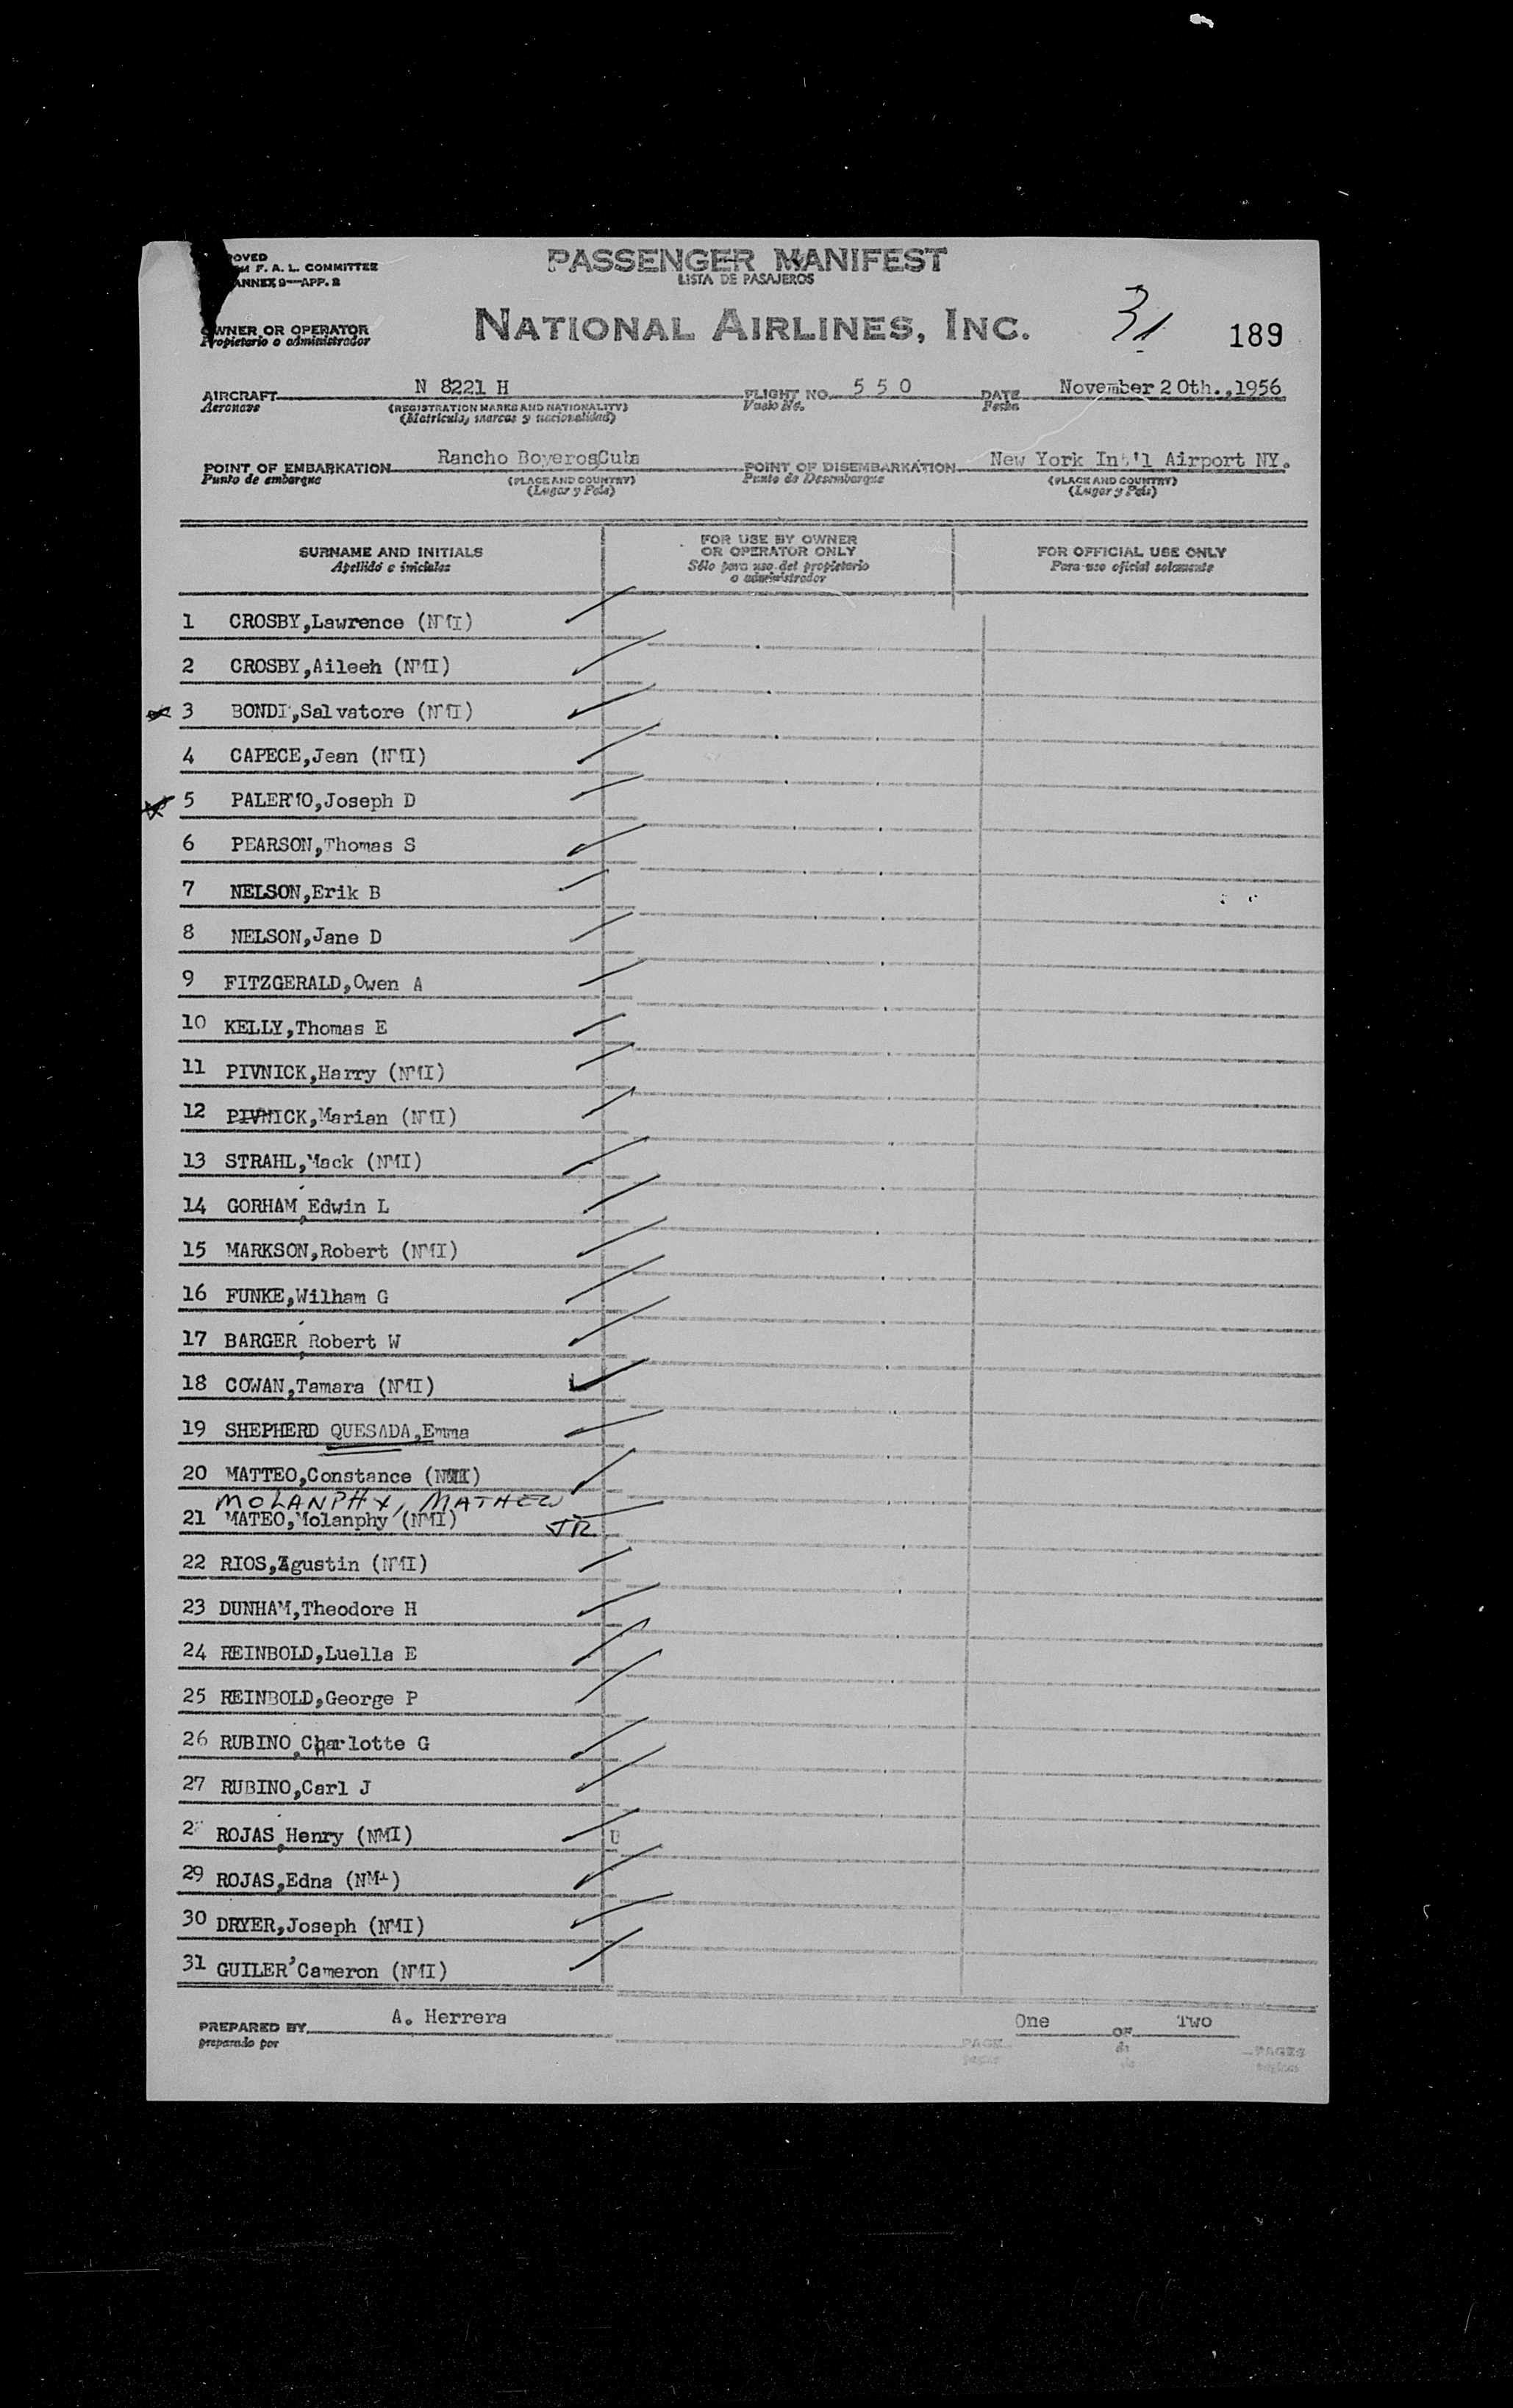 PASSENGER MANIFEST
LISTA DE PASAJEROS
OVED
M F. A. L. COMMITTEE
ANNEX 9—APP. 2
NATIONAL AIRLINES, INC.
31
189
OWNER OR OPERATOR
Propietario o administrador
AIRCRAFT N 8221 H FLIGHT NO. 5 5 0 DATE November 20th.,1956
Aeronave (REGISTRATION MARKS AND NATIONALITY) Vuelo No. Fecha
(Matricula, marcas y nacionalidad)
POINT OF EMBARKATION Rancho Boyeros,Cuba POINT OF DISEMBARKATION New York Int'l Airport NY.
Punto de embarque (PLACE AND COUNTRY) Punto de Desembarque (PLACE AND COUNTRY)
(Lugar y País) (Lugar y País)
SURNAME AND INITIALS
Apellido e iniciales
FOR USE BY OWNER
OR OPERATOR ONLY
Sólo para uso del propietario
o administrador
FOR OFFICIAL USE ONLY
Para uso oficial solamente
1 CROSBY,Lawrence (NMI)
2 CROSBY,Aileeh (NMI)
3 BONDI,Salvatore (NMI)
4 CAPECE,Jean (NMI)
5 PALERMO,Joseph D
6 PEARSON,Thomas S
7 NELSON,Erik B
8 NELSON,Jane D
9 FITZGERALD,Owen A
10 KELLY,Thomas E
11 PIVNICK,Harry (NMI)
12 PIVNICK,Marian (NMI)
13 STRAHL,Mack (NMI)
14 GORHAM,Edwin L
15 MARKSON,Robert (NMI)
16 FUNKE,Wilham G
17 BARGER,Robert W
18 COWAN,Tamara (NMI)
19 SHEPHERD QUESADA,Emma
20 MATTEO,Constance (NMI)
MOLANPHY, MATHEW
21 MATEO,Molanphy (NMI) JR
22 RIOS,Agustin (NMI)
23 DUNHAM,Theodore H
24 REINBOLD,Luella E
25 REINBOLD,George P
26 RUBINO,Charlotte G
27 RUBINO,Carl J
2 ROJAS,Henry (NMI) U
29 ROJAS,Edna (NMI)
30 DRYER,Joseph (NMI)
31 GUILER'Cameron (NMI)
PREPARED BY A. Herrera PAGE One OF Two PAGES
preparado por de